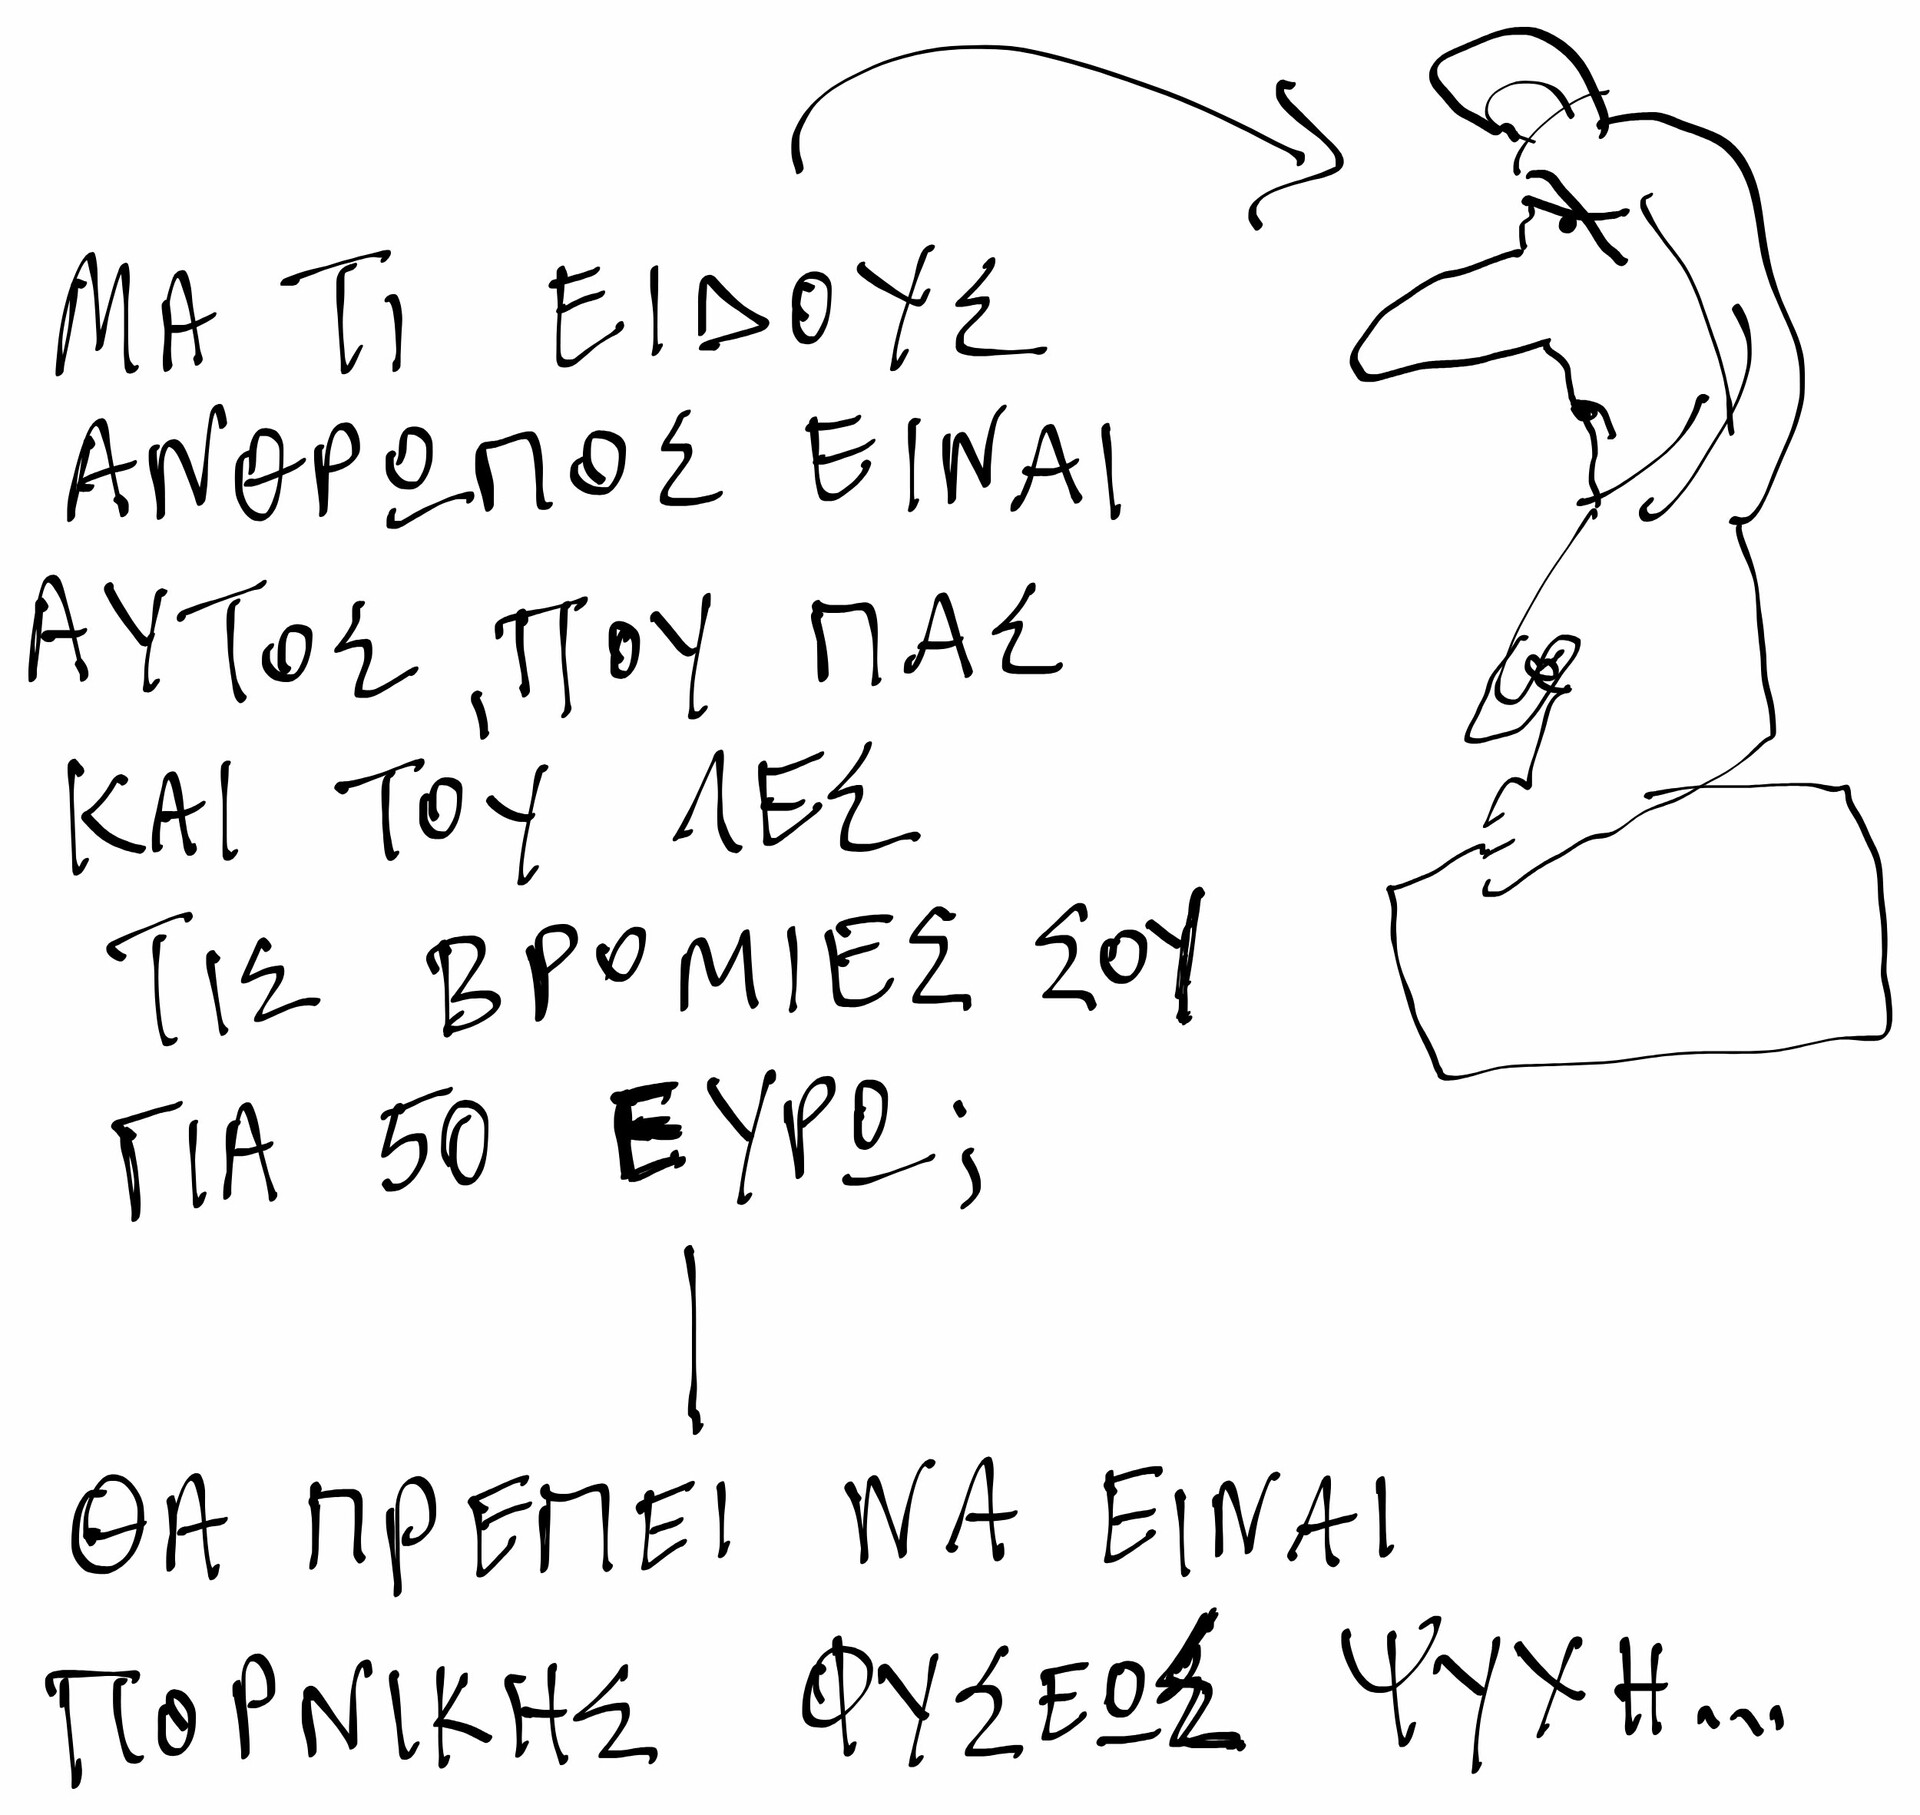 ΜΑ ΤΙ ΕΙΔΟΥΣ
ΑΝΘΡΩΠΟΣ ΕΙΝΑΙ
ΑΥΤΟΣ, ΠΟΥ ΠΑΣ
ΚΑΙ ΤΟΥ ΛΕΣ
ΤΙΣ ΒΡΟΜΙΕΣ ΣΟΥ
ΓΙΑ 50 ΕΥΡΩ;
ΘΑ ΠΡΕΠΕΙ ΝΑ ΕΙΝΑΙ
ΠΟΡΝΙΚΗΣ ΦΥΣΕΩΣ ΨΥΧΗ...